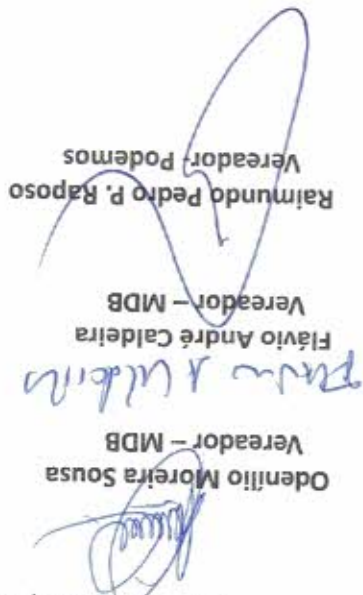 Odenílio Moreira Sousa
Vereador – MDB
Flávio André Caldeira
Vereador – MDB
Raimundo Pedro P. Raposo
Vereador- Podemos